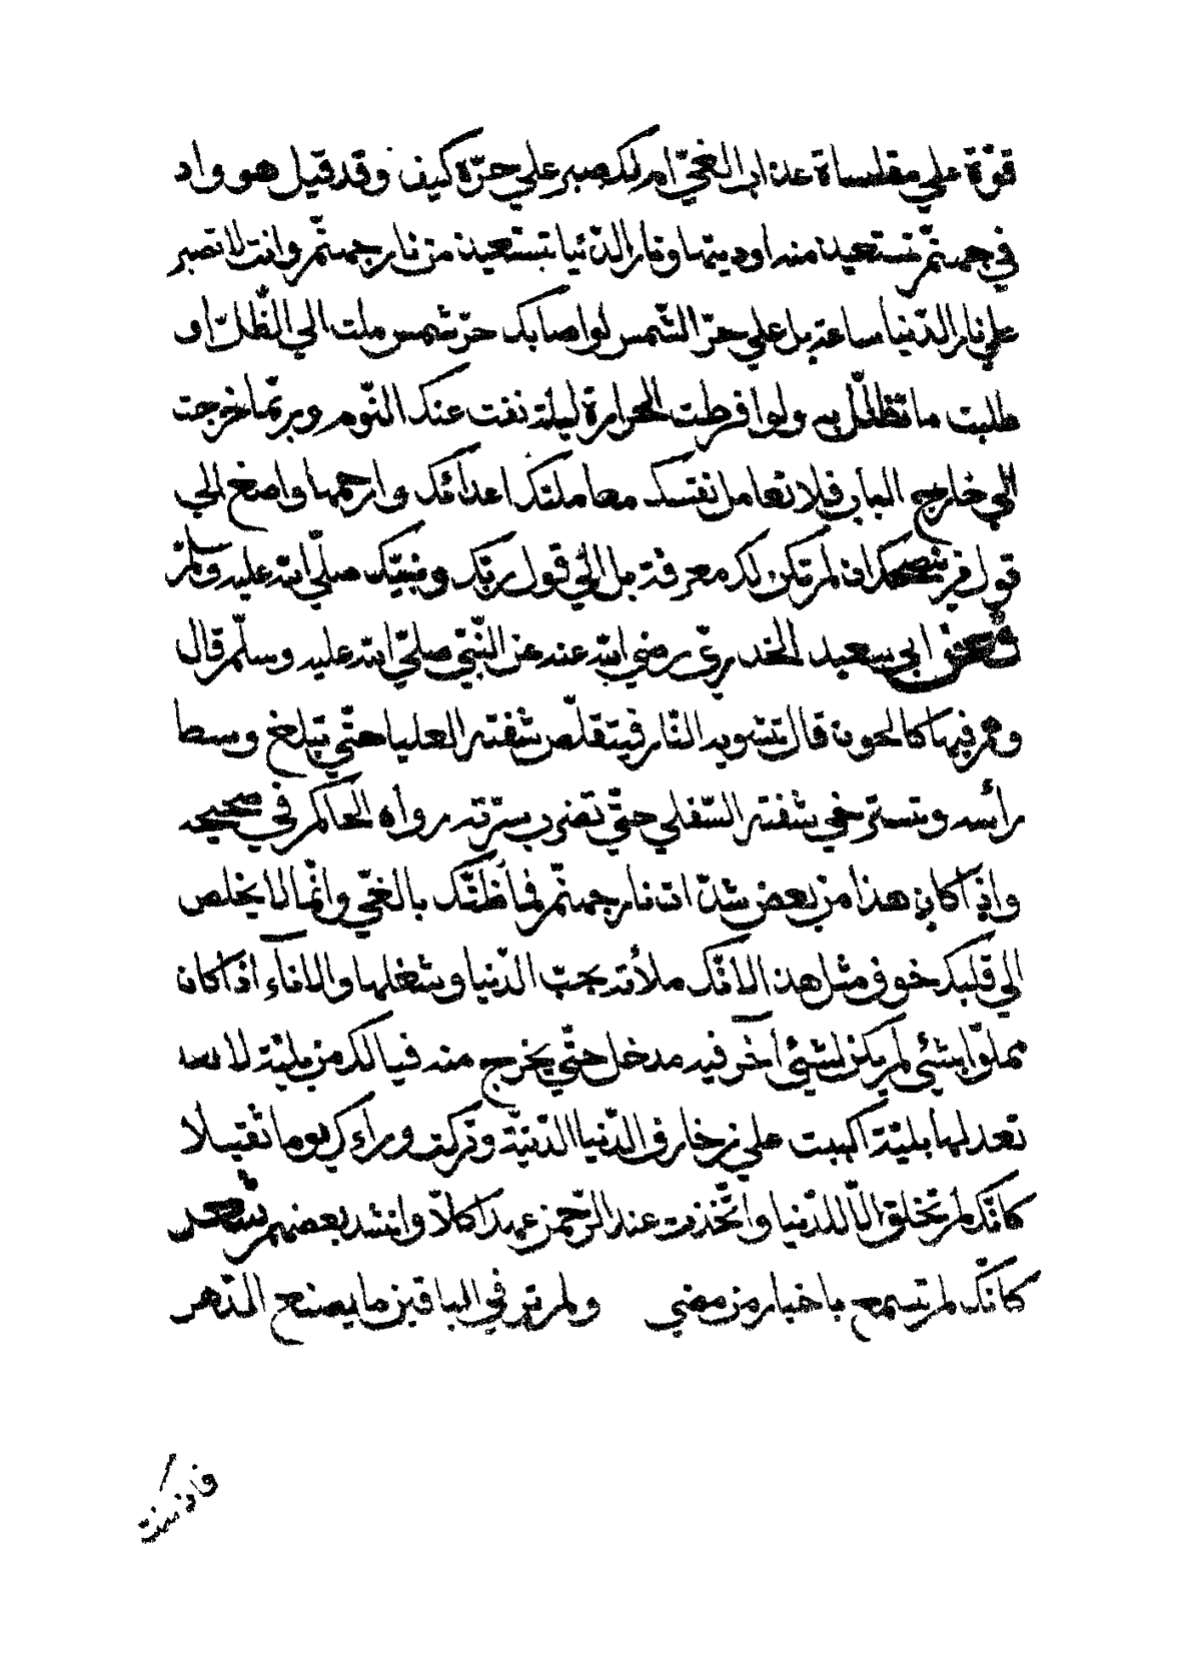 قوّة علي مقاساة عذاب الغيّ ام لك صبر علي حرّه كيف وقد قيل هو واد
في جهنّم تستعيذ منه اوديتها ونار الدّنيا تستعيذ من نار جهنّم وانت لا تصبر
علي نار الدّنيا ساعة بل علي حرّ الشّمس لو اصابك حرّ شمس ملت الي الظّلّ او
طلبت ما تظلّل به ولو افرطت الحرارة ليلة نفت عنك النّوم وربّما خرجت
الي خارج الباب فلا تعامل نفسك معاملتك اعدائك وارحمها واصغ الي
قول من ينصحك ان لم تكن لك معرفة بل الي قول ربّك ونبيّك صلّي الله عليه وسلّم
فعن ابي سعيد الخدريّ رضي الله عنه عن النّبيّ صلّي الله عليه وسلّم قال
وهم فيها كالحون قال تشويه النّار فيتقلّص شفته العليا حتّي تبلغ وسط
رأسه وتسترخي شفته السّفلي حتّي تضرب سرّته رواه الحاكم في صحيحه
واذا كان هذا من بعض شدّة نار جهنّم فما ظنّك بالغيّ وانّما لا يخلص
الي قلبك خوف مثل هذا لانّك ملأته بحبّ الدّنيا وشغلها والاناء اذا كان
مملوّا بشئ لم يكن لشئ آخر فيه مدخل حتّي يخرج منه فيا لك من بليّة لا
تعدلها بليّة اكببت علي زخارف الدّنيا الدّنيّة وتركت وراءك يوما ثقيلا
كانّك لم تخلق الّا للدّنيا واتّخذت عند الرّحمن عهدا كلّا وانشد بعضهم شعر
كانّك لم تسمع باخبار من مضي ولم تر في الباقين ما يصنع الدّهر